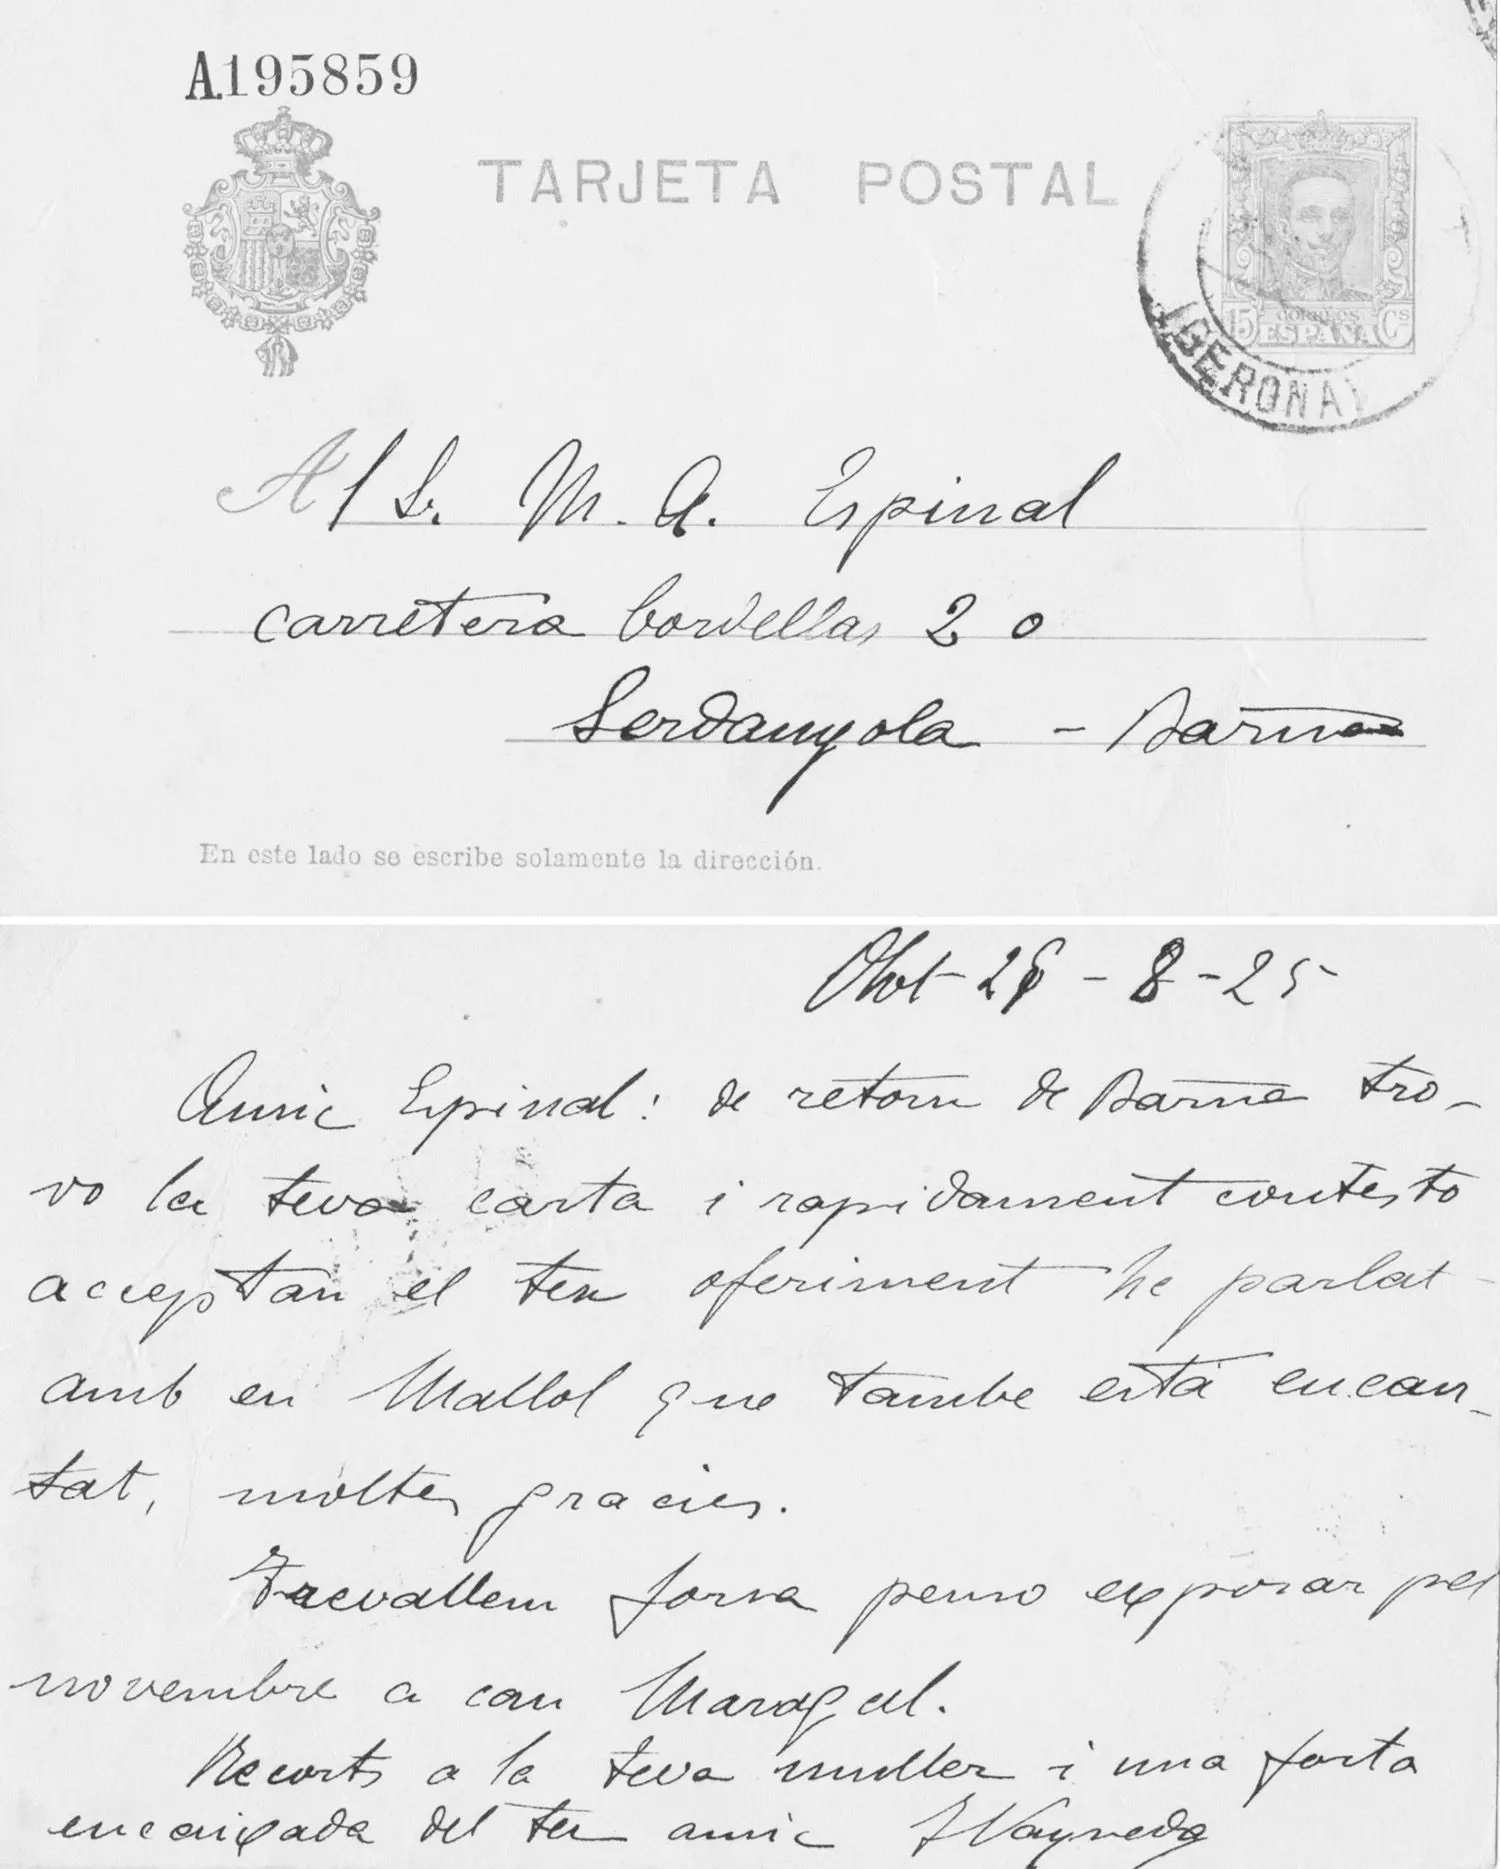 A.195859
TARJETA POSTAL
15 CORREOS Cs
ESPAÑA
GERONA
Al Sr. M. A. Espinal
carretera Cordellas 20
Serdanyola - Barna
En este lado se escribe solamente la dirección.
Olot 26 - 8 - 25
Amic Espinal: de retorn de Barna tro-
vo la teva carta i rapidament contesto
acceptan el teu oferiment he parlat
amb en Mallol que tambe està encan-
tat, moltes gracies.
Trevallem forsa penso exposar pel
novembre a can Maragal.
Recorts a la teva muller i una forta
encaixada del teu amic J Vayreda